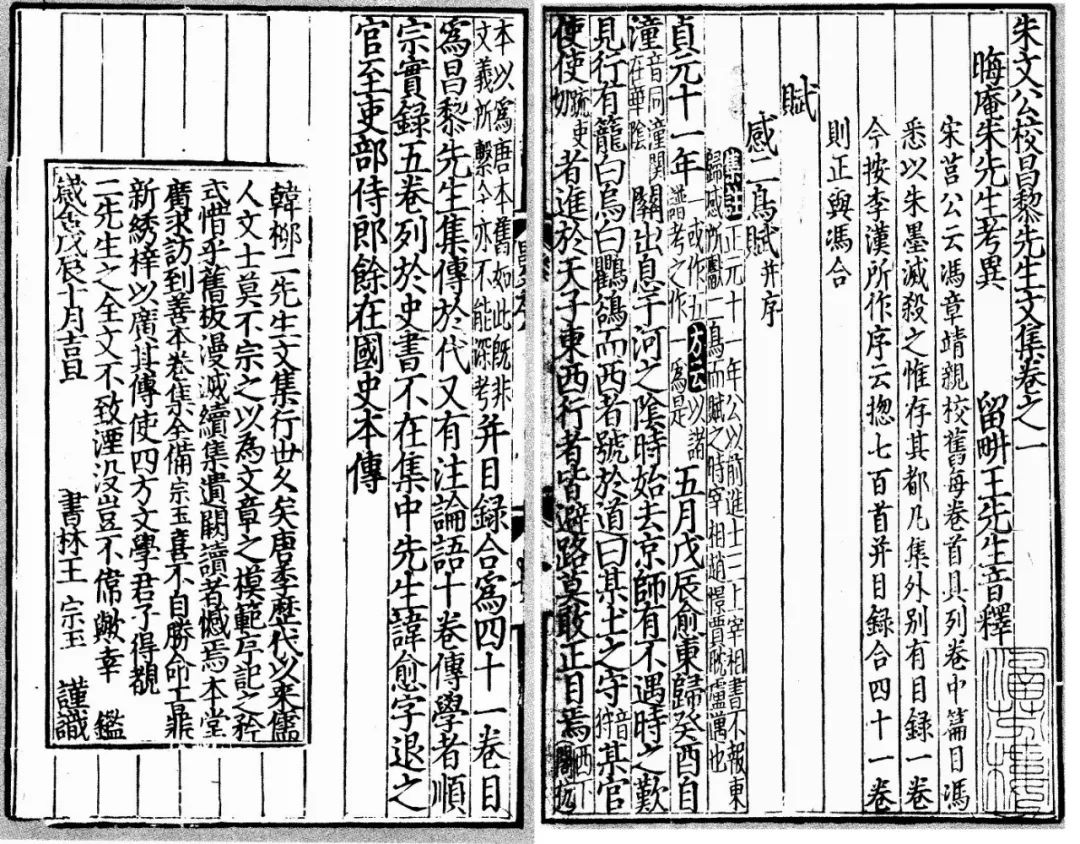 朱文公校昌黎先生文集卷之一
晦庵朱先生考異 留畊王先生音釋
宋莒公云馮章靖親校舊每卷首具列卷中篇目馮
悉以朱墨滅殺之惟存其都凡集外别有目録一卷
今按李漢所作序云揔七百首并目録合四十一卷
則正與馮合
賦
感二鳥賦并序
集註正元十一年公以前進士三上宰相書不報東
歸感所獻二鳥而賦之時宰相趙憬賈耽盧邁也
貞元十一年一或作五方云以諸譜考之作一爲是五月戊辰愈東歸癸酉自
潼音同潼關在華陰關出息于河之陰時始去京師有不遇時之歎
見行有籠白烏白鸜鵒而西者號於道曰某土之守音狩某官
使使疏吏切者進於天子東西行者皆避路莫敢正目焉
本以爲唐本舊如此旣非文義所繫今亦不能深考并目録合爲四十一卷目
爲昌黎先生集傳於代又有注論語十卷傳學者順
宗實録五卷列於史書不在集中先生諱愈字退之
官至吏部侍郎餘在國史本傳
韓柳二先生文集行世久矣唐季歷代以來儒
人文士莫不宗之以為文章之模範序記之矜
式惜乎舊板漫滅續集遺闕讀者憾焉本堂
廣求訪到善本卷集全備宗玉喜不自勝命工鼎
新綉梓以廣其傳使四方文學君子得覩
二先生之全文不致湮没豈不偉歟幸 鑑
歲舍戊辰十月吉旦 書林王宗玉 謹識